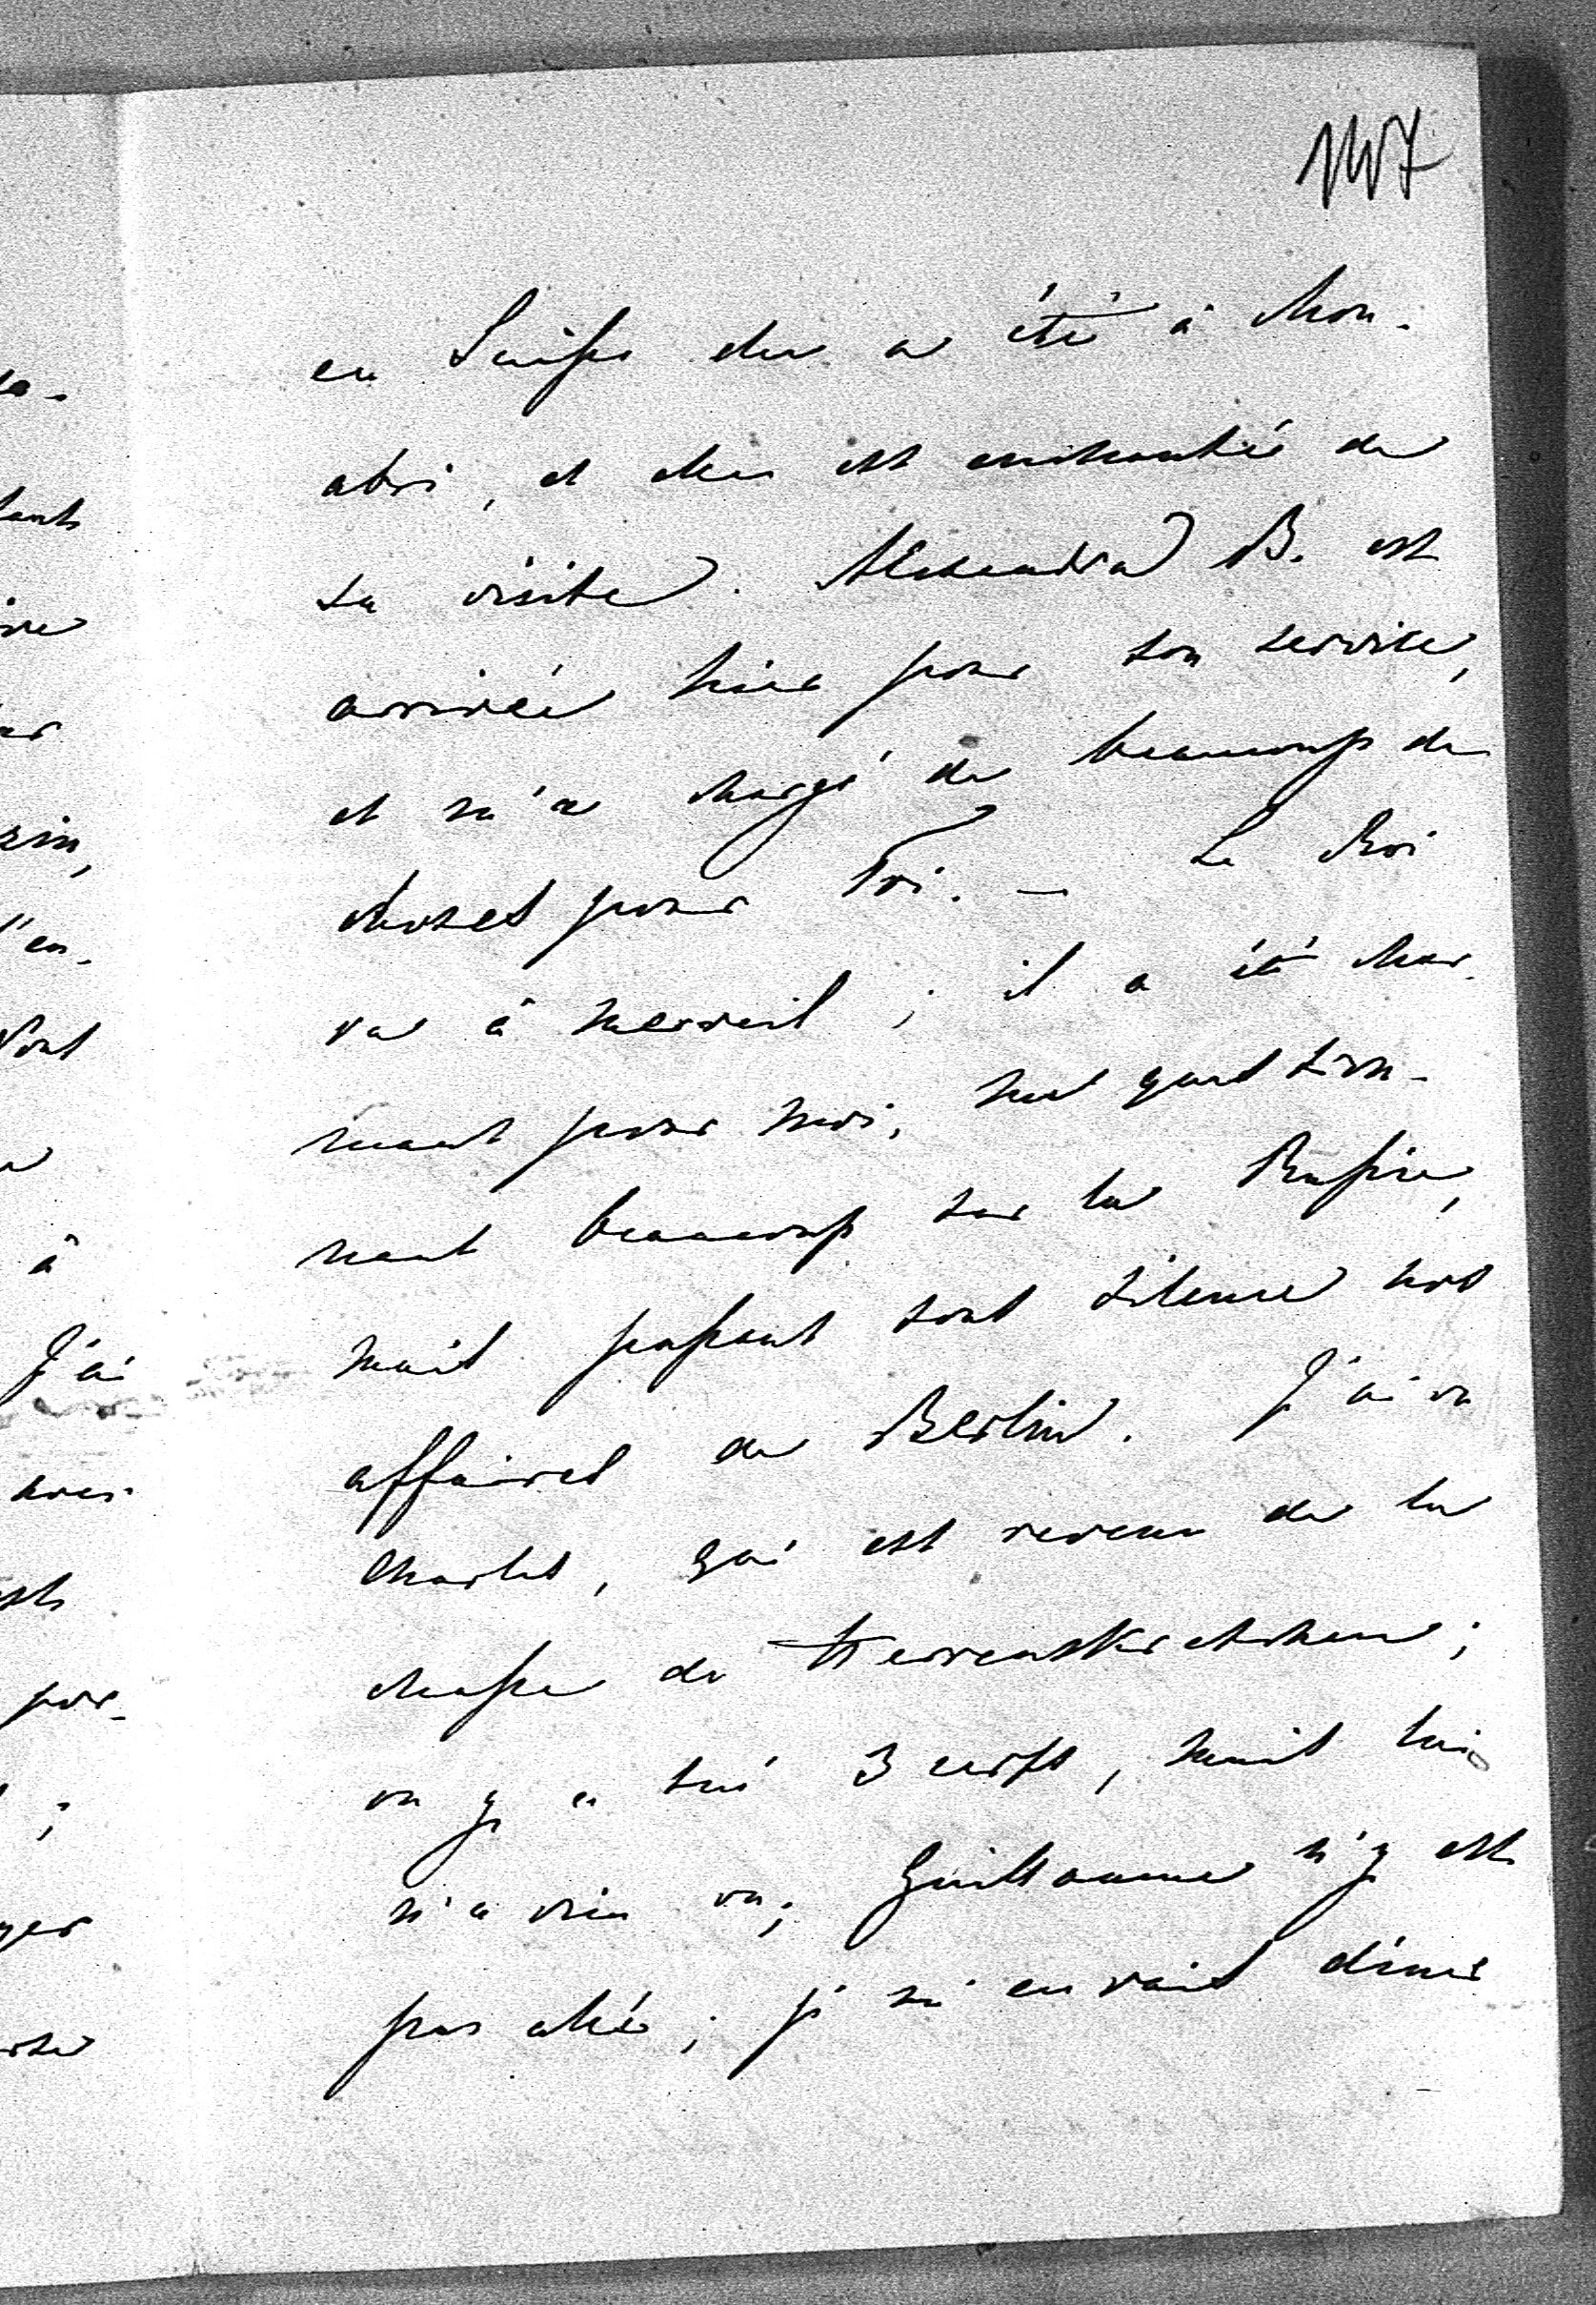 107
en Suisse elle a été à Mon-
abri, et elle est enchantée de
sa visite. Alexandra B. est
arrivée hier pour son service,
et m'a chargé de beaucoup de
choses pour Toi. — Le Roi
va à merveil; il a été char-
mant pour moi, me question-
nant beaucoup sur la Russie,
mais passant sous silence nos
affaires de Berlin. J'ai vu
Charles, qui est revenu de la
chasse de
on y a tué 3 cerfs, mais lui
n'a rien vu; Guillaume n'y est
pas allé; je m'en vais dîner
à
J'ai